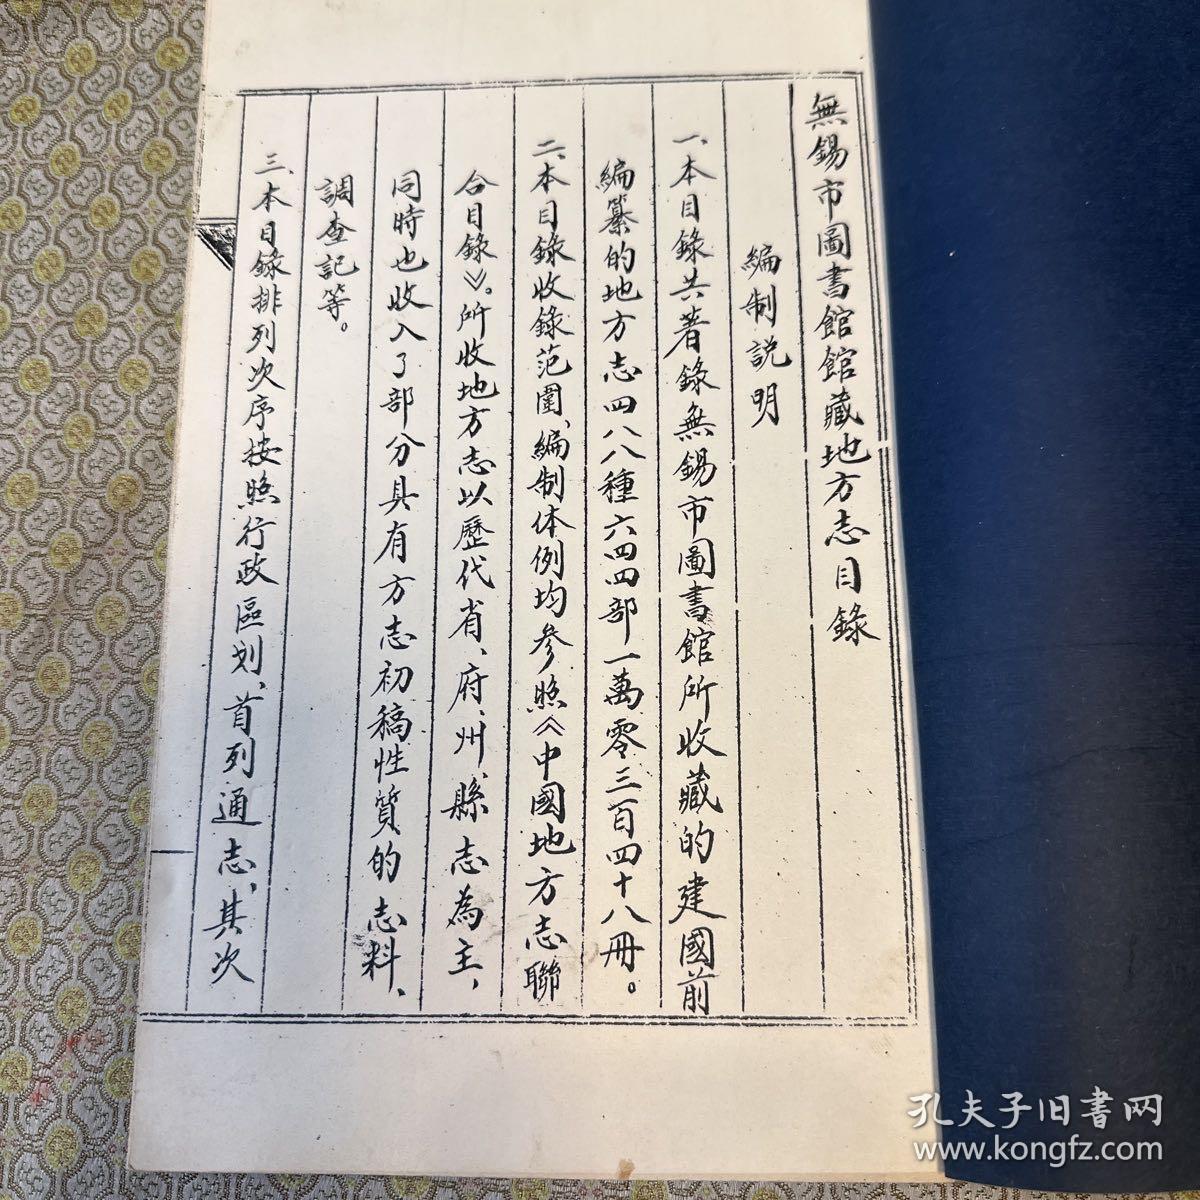 無錫市圖書館館藏地方志目錄
編制説明
一、本目錄共著錄無錫市圖書館所收藏的建國前
編纂的地方志四八八種六四四部一萬零三百四十八冊。
二、本目錄收錄范圍、編制体例均参照《中國地方志聯
合目錄》。所收地方志以歷代省、府、州、縣志為主，
同時也收入了部分具有方志初稿性質的志料、
調查記等。
三、本目錄排列次序按照行政區划、首列通志、其次
孔夫子旧書网
www.kongfz.com